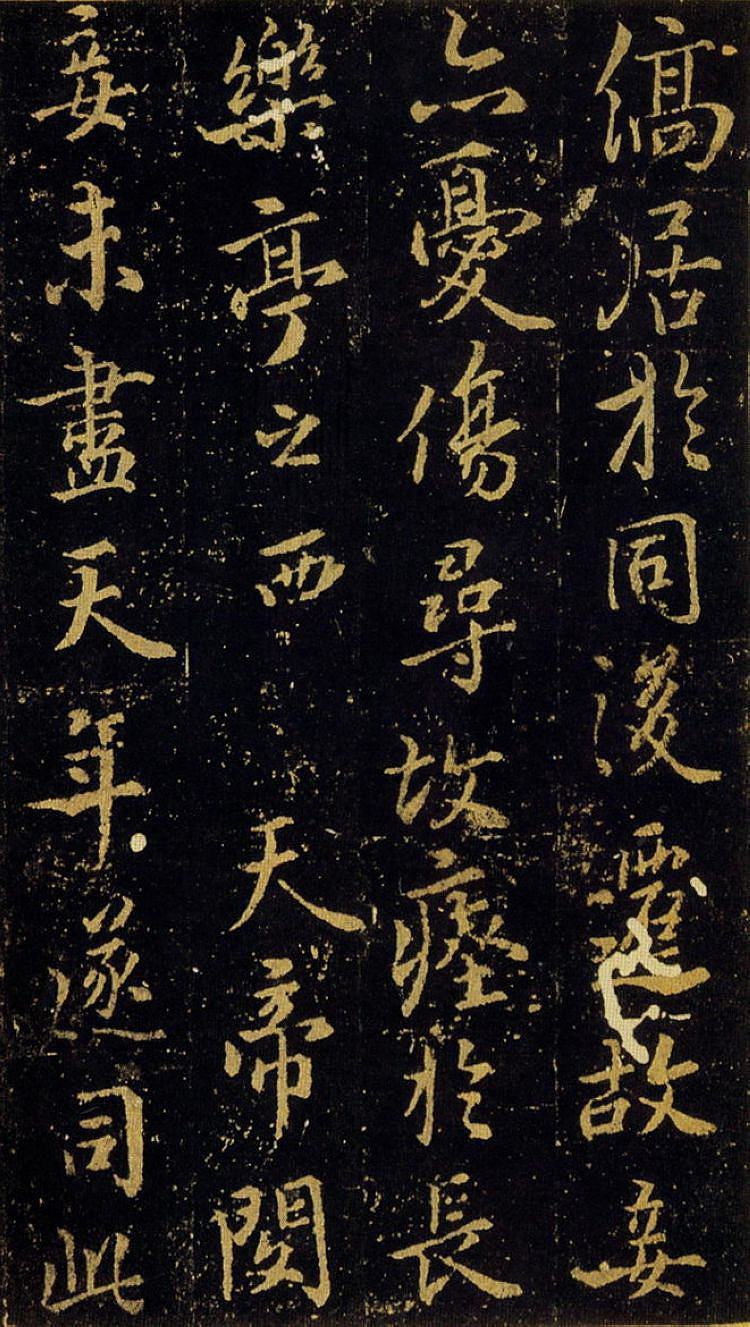 僑居於同後遷故妾
亡憂傷尋故瘞於長
樂亭之西 天帝閔
妾未盡天年遂司此